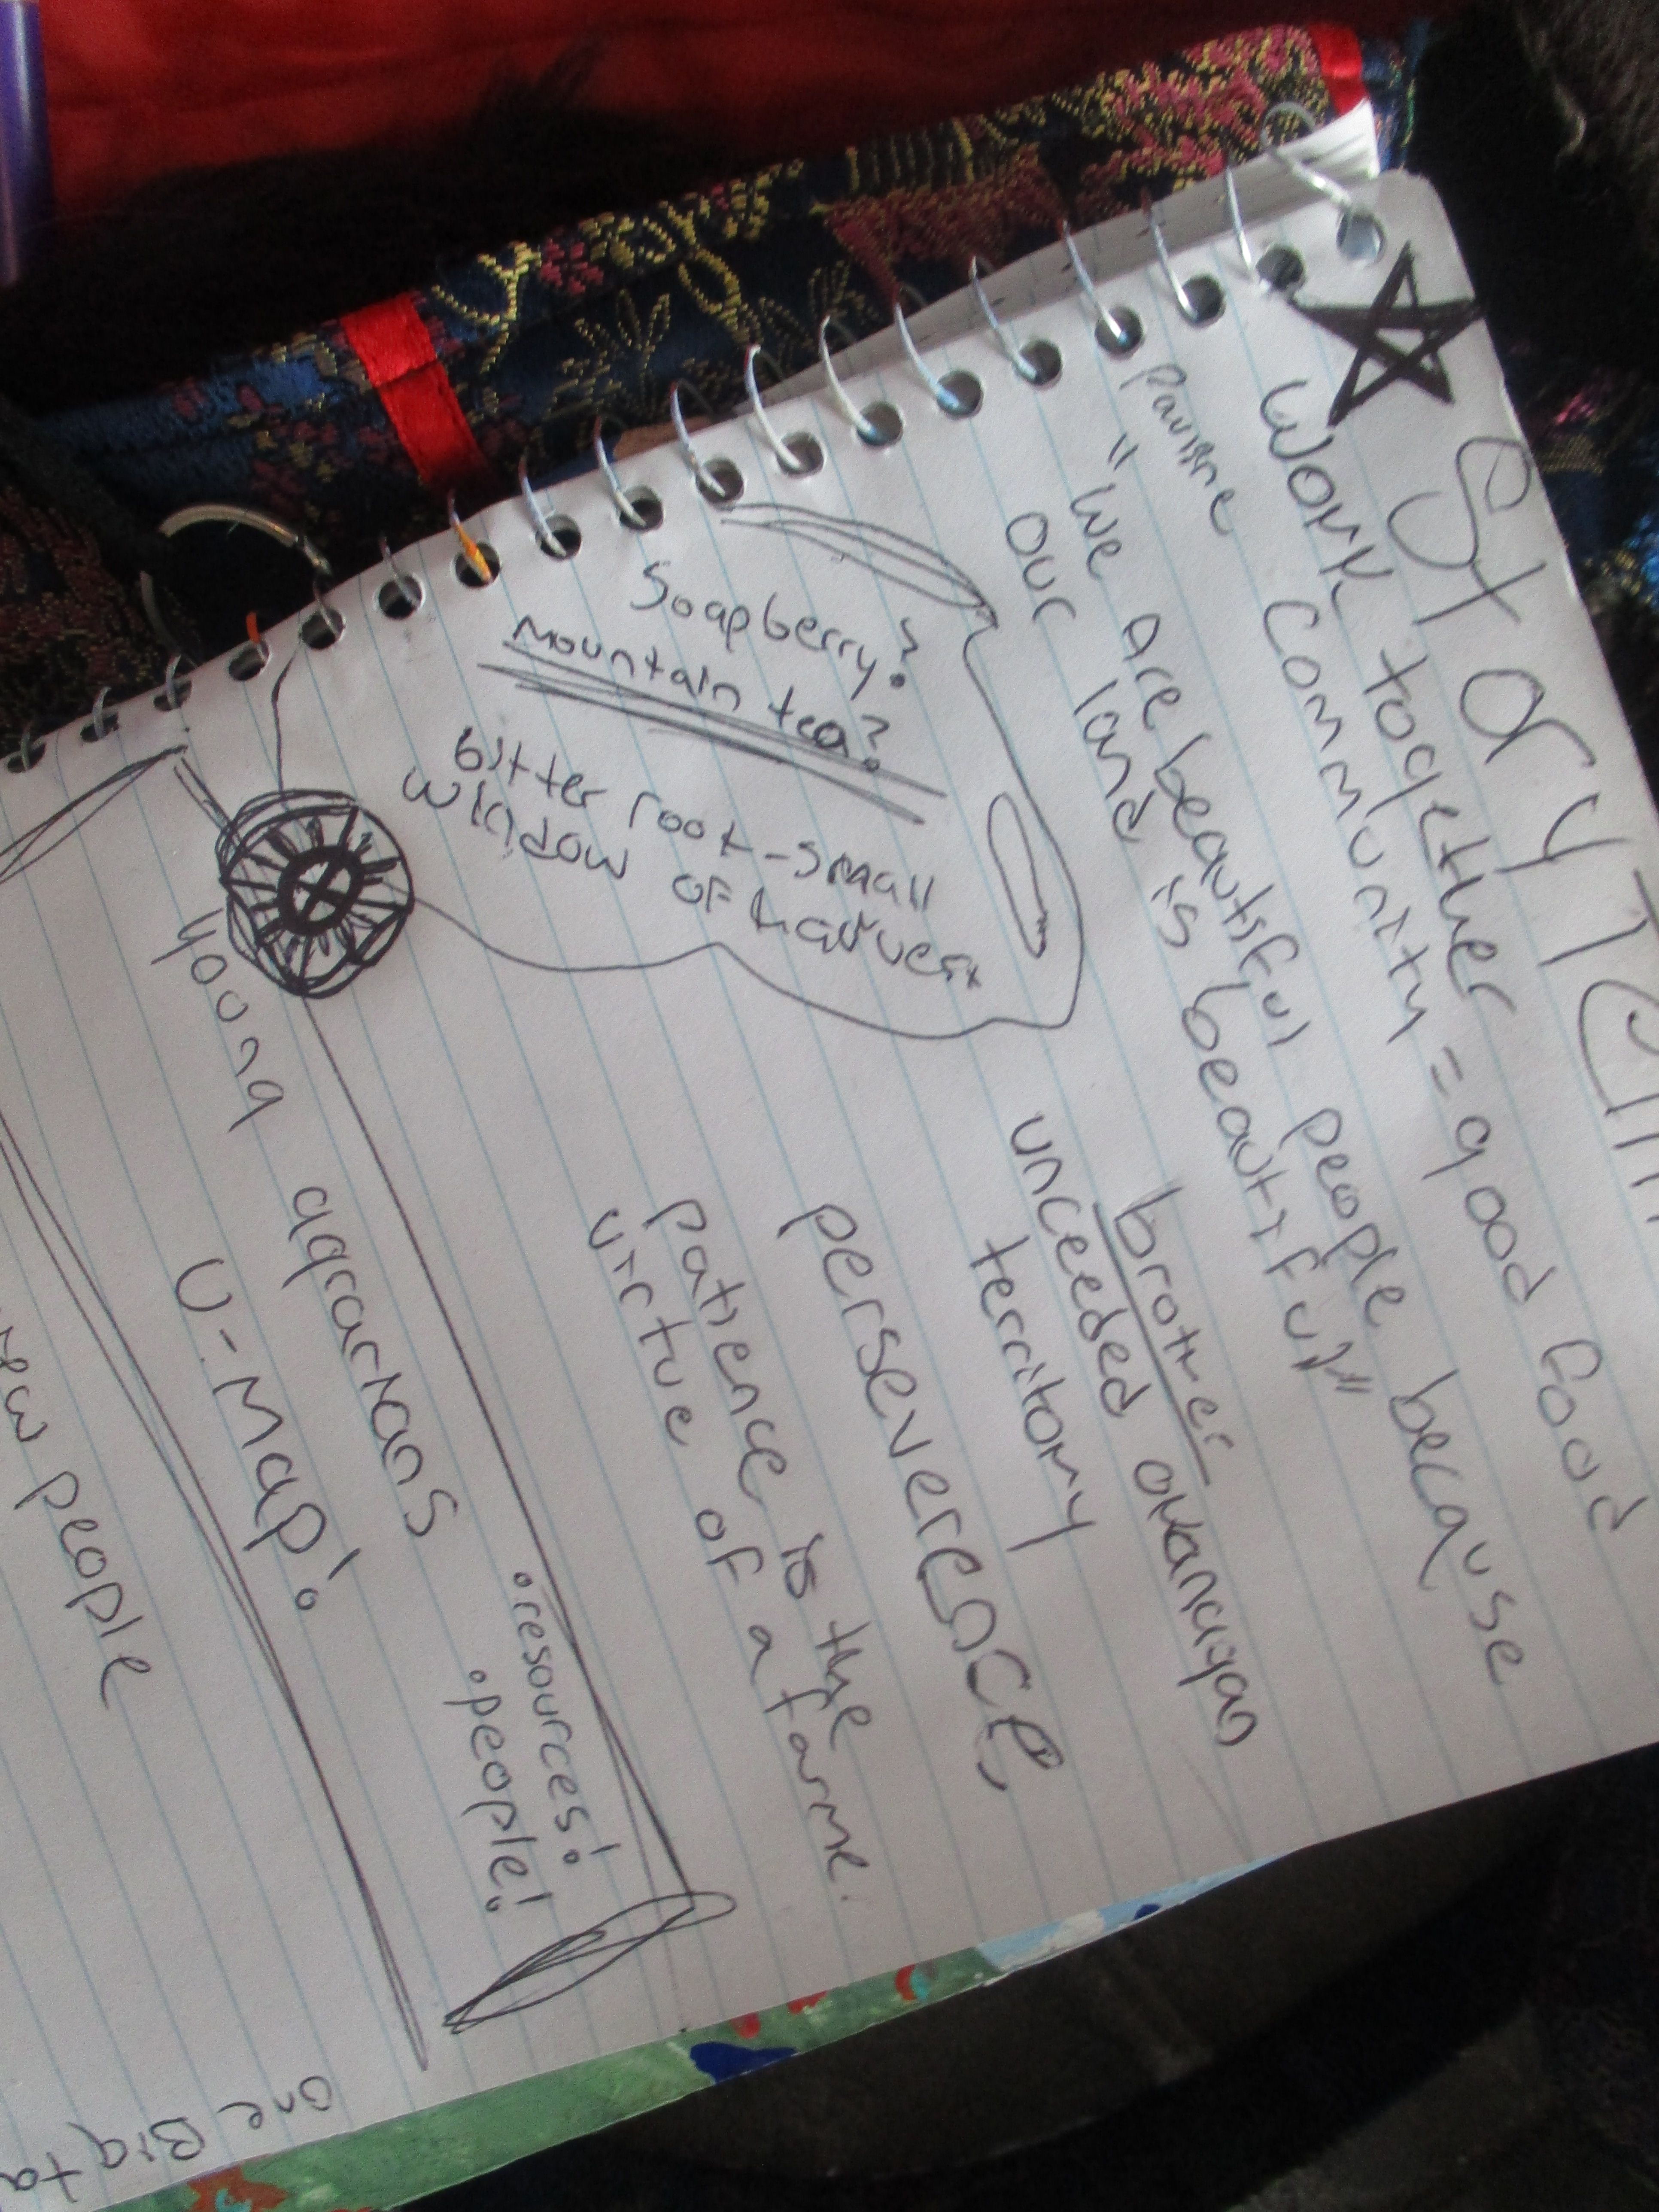 StoryTellin
work together = good food
community
Pauline
"we are beautiful people because
our land is beautiful"
brother
unceeded okanagan
territory
perseverence,
patience is the
virtue of a farmer.
Soapberry?
Mountain tea?
bitter root - small
window of harvest
• resources!
• people!
young agrarians
U-Map!
new people
one Big ta